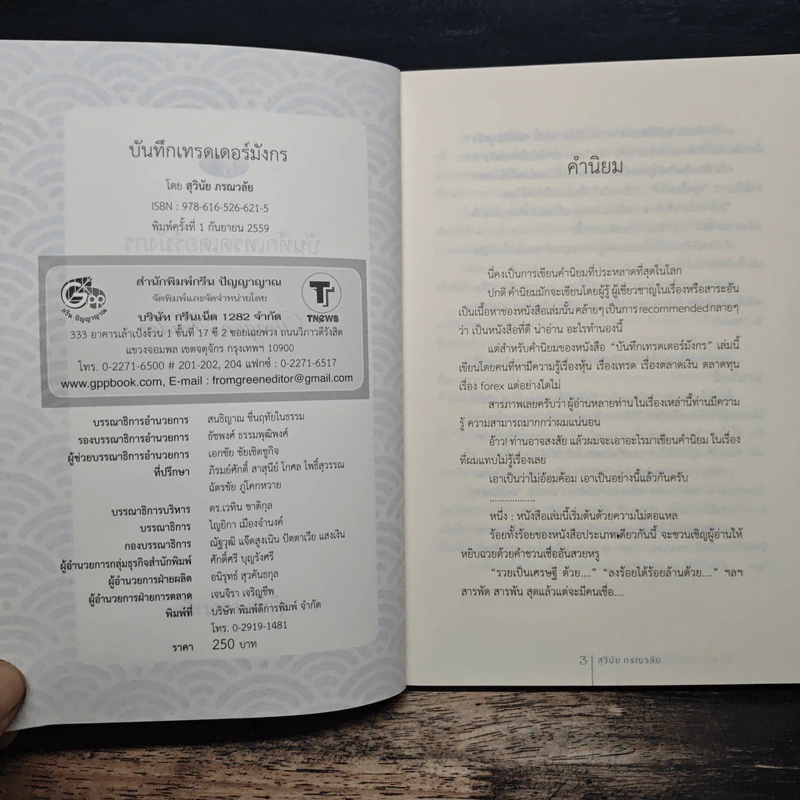 บันทึกเทรดเดอร์มังกร
โดย สุวินัย ภรณวลัย
ISBN : 978-616-526-621-5
พิมพ์ครั้งที่ 1 กันยายน 2559
Gpp
กรีน ปัญญาญาณ
สำนักพิมพ์กรีน ปัญญาญาณ
จัดพิมพ์และจัดจำหน่ายโดย
บริษัท กรีนเน็ต 1282 จำกัด
TNEWS
333 อาคารเล้าเป้งง้วน 1 ชั้นที่ 17 ซี 2 ซอยเฉยพ่วง ถนนวิภาวดีรังสิต
แขวงจอมพล เขตจตุจักร กรุงเทพฯ 10900
โทร. 0-2271-6500 # 201-202, 204 แฟกซ์ : 0-2271-6517
www.gppbook.com, E-mail : fromgreeneditor@gmail.com
บรรณาธิการอำนวยการ สนธิญาณ ชื่นฤทัยในธรรม
รองบรรณาธิการอำนวยการ ธัชพงศ์ ธรรมพุฒิพงศ์
ผู้ช่วยบรรณาธิการอำนวยการ เอกชัย ชัยเชิดชูกิจ
ที่ปรึกษา ภิรมย์ศักดิ์ สาสุนีย์ โกศล โพธิ์สุวรรณ
ฉัตรชัย ภู่โคกหวาย
บรรณาธิการบริหาร ดร.เวทิน ชาติกุล
บรรณาธิการ ไญยิกา เมืองจำนงค์
กองบรรณาธิการ ณัฐวุฒิ แจ๊ดสูงเนิน ปัตตาเวีย แสงเงิน
ผู้อำนวยการกลุ่มธุรกิจสำนักพิมพ์ ศักดิ์ศรี บุญรังศรี
ผู้อำนวยการฝ่ายผลิต อนิรุทธ์ สุวคันธกุล
ผู้อำนวยการฝ่ายการตลาด เจนจิรา เจริญชีพ
พิมพ์ที่ บริษัท พิมพ์ดีการพิมพ์ จำกัด
โทร. 0-2919-1481
ราคา 250 บาท
คำนิยม
นี่คงเป็นการเขียนคำนิยมที่ประหลาดที่สุดในโลก
ปกติ คำนิยมมักจะเขียนโดยผู้รู้ ผู้เชี่ยวชาญในเรื่องหรือสาระอัน
เป็นเนื้อหาของหนังสือเล่มนั้น คล้ายๆ เป็นการ recommended กลายๆ
ว่า เป็นหนังสือที่ดี น่าอ่าน อะไรทำนองนี้
แต่สำหรับคำนิยมของหนังสือ "บันทึกเทรดเดอร์มังกร" เล่มนี้
เขียนโดยคนที่หามีความรู้เรื่องหุ้น เรื่องเทรด เรื่องตลาดเงิน ตลาดทุน
เรื่อง forex แต่อย่างใดไม่
สารภาพเลยครับว่า ผู้อ่านหลายท่าน ในเรื่องเหล่านี้ท่านมีความ
รู้ ความสามารถมากกว่าผมแน่นอน
อ้าว! ท่านอาจสงสัย แล้วผมจะเอาอะไรมาเขียนคำนิยม ในเรื่อง
ที่ผมแทบไม่รู้เรื่องเลย
เอาเป็นว่าไม่อ้อมค้อม เอาเป็นอย่างนี้แล้วกันครับ
..................
หนึ่ง : หนังสือเล่มนี้เริ่มต้นด้วยความไม่ตอแหล
ร้อยทั้งร้อยของหนังสือประเภทเดียวกันนี้ จะชวนเชิญผู้อ่านให้
หยิบฉวยด้วยคำชวนเชื่ออันสวยหรู
"รวยเป็นเศรษฐี ด้วย...." "ลงร้อยได้ร้อยล้านด้วย...." ฯลฯ
สารพัด สารพัน สุดแล้วแต่จะมีคนเชื่อ....
3 สุวินัย ภรณวลัย